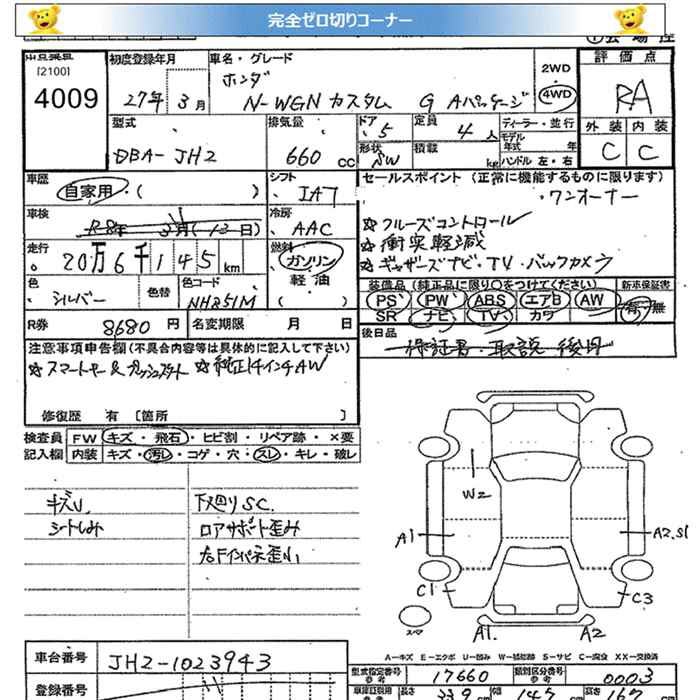 完全ゼロ切りコーナー
[2100]
4009
初度登録年月
27年 3月
車名・グレード
ホンダ
N-WGN カスタム G Aパッケージ
2WD
4WD
評価点
RA
外装 内装
C C
型式
DBA-JH2
排気量
660 cc
ドア
5
定員
4人
形状
SW
積載
kg
ディーラー・並行
モデル年式 年式
ハンドル 左・右
車歴
自家用・( )
シフト
IAT
セールスポイント (正常に機能するものに限ります)
・ワンオーナー
☆クルーズコントロール
☆衝突軽減
☆ギャザーズナビ・TV・バックカメラ
車検
R8年 3月(13日)
冷房
AAC
走行
20万6千145km
燃料
ガソリン
軽油
( )
色
シルバー
色替
色コード
NH851M
装備品 (純正品に限り○をつけてください)
PS PW ABS エアB AW
SR ナビ TV カワ
新車保証書
有・無
R券
8680円
名変期限 月 日
後日品
保証書・取説 後日
注意事項申告欄(不具合内容等は具体的に記入して下さい)
☆スマートキー&プッシュスタート ☆純正14インチAW
修復歴 有 [箇所 ]
検査員
記入欄
FW キズ・飛石・ヒビ割・リペア跡・×要
内装 キズ・汚レ・コゲ・穴・スレ・キレ・破レ
キズU
シートしみ
下廻りSC.
ロアサポート歪み
右Fインパネ歪小
W2
A1
A2.S1
C1
C3
スペア
A1.
A2
A-キズ E-エクボ U-凹み W-補修跡 S-サビ C-腐食 XX-交換済
車台番号
JH2-1023943
登録番号
型式指定番号
参考
17660
類別区分番号
参考
0003
長さ
339
幅
147
高さ
167